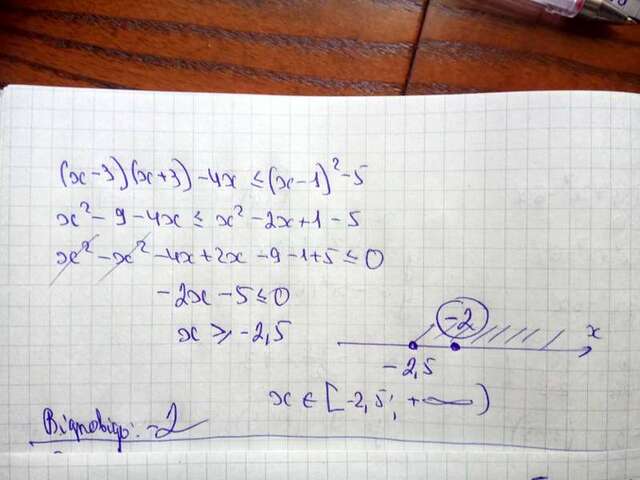 (x-3)(x+3)-4x ≤ (x-1)²-5
x²-9-4x ≤ x²-2x+1-5
x²-x²-4x+2x-9-1+5 ≤ 0
-2x-5 ≤ 0
x ≥ -2,5
-2
x
-2,5
x ∈ [-2,5; +∞)
Відповідь: -2